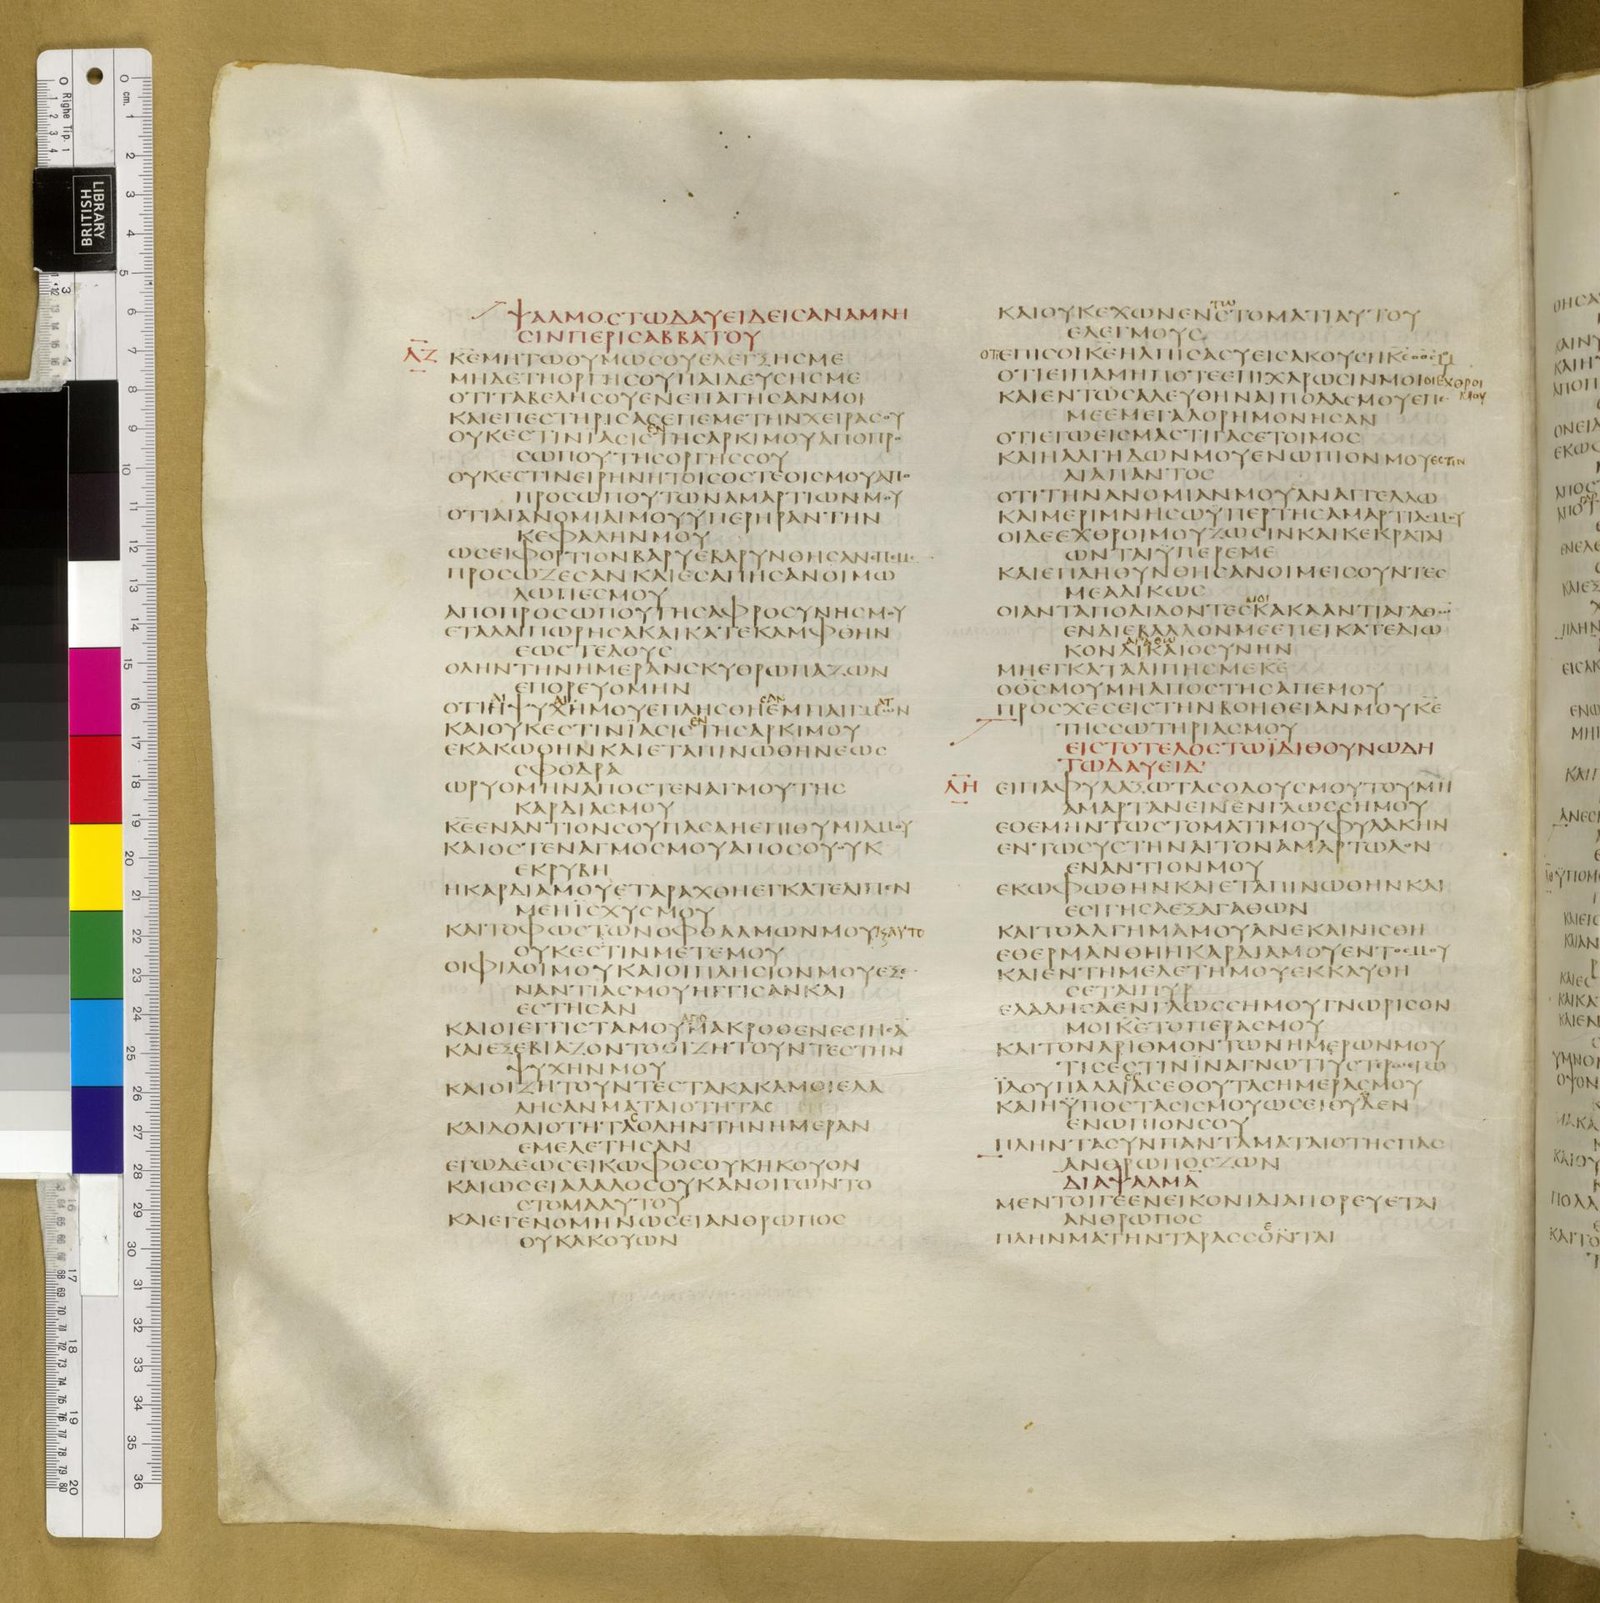 ΨΑΛΜΟСΤΩΔΑΥΕΙΔΕΙСΑΝΑΜΝΗ
СΙΝΠΕΡΙСΑΒΒΑΤΟΥ
ΛΖ ΚΕΜΗΤΩΘΥΜΩСΟΥΕΛΕΓΞΗСΜΕ
ΜΗΔΕΤΗΟΡΓΗСΟΥΠΑΙΔΕΥСΗСΜΕ
ΟΤΙΤΑΒΕΛΗСΟΥΕΝΕΠΑΓΗСΑΝΜΟΙ
ΚΑΙΕΠΕСΤΗΡΙСΑСΕΠΕΜΕΤΗΝΧΕΙΡΑСΟΥ
ΟΥΚΕСΤΙΝΙΑСΙСΕΝΤΗСΑΡΚΙΜΟΥΑΠΟΠΡΟ
СΩΠΟΥΤΗСΟΡΓΗССΟΥ
ΟΥΚΕСΤΙΝΕΙΡΗΝΗΤΟΙСΟСΤΕΟΙСΜΟΥΑΠΟ
ΠΡΟСΩΠΟΥΤΩΝΑΜΑΡΤΙΩΝΜΟΥ
ΟΤΙΑΙΑΝΟΜΙΑΙΜΟΥΫΠΕΡΗΡΑΝΤΗΝ
ΚΕΦΑΛΗΝΜΟΥ
ΩСΕΙΦΟΡΤΙΟΝΒΑΡΥΕΒΑΡΥΝΘΗСΑΝΕΠΕΜΕ
ΠΡΟСΩΖΕСΑΝΚΑΙΕСΑΠΗСΑΝΟΙΜΩ
ΛΩΠΕСΜΟΥ
ΑΠΟΠΡΟСΩΠΟΥΤΗСΑΦΡΟСΥΝΗСΜΟΥ
ΕΤΑΛΑΙΠΩΡΗСΑΚΑΙΚΑΤΕΚΑΜΦΘΗΝ
ΕΩСΤΕΛΟΥС
ΟΛΗΝΤΗΝΗΜΕΡΑΝСΚΥΘΡΩΠΑΖΩΝ
ΕΠΟΡΕΥΟΜΗΝ
ΟΤΙΗΨΥΧΗΜΟΥΕΠΛΗСΘΗΕΜΠΑΙΓΜΩΝ
ΚΑΙΟΥΚΕСΤΙΝΙΑСΙСΕΝΤΗСΑΡΚΙΜΟΥ
ΕΚΑΚΩΘΗΝΚΑΙΕΤΑΠΙΝΩΘΗΝΕΩС
СΦΟΔΡΑ
ΩΡΥΟΜΗΝΑΠΟСΤΕΝΑΓΜΟΥΤΗС
ΚΑΡΔΙΑСΜΟΥ
ΚΕΕΝΑΝΤΙΟΝСΟΥΠΑСΑΗΕΠΙΘΥΜΙΑΜΟΥ
ΚΑΙΟСΤΕΝΑΓΜΟСΜΟΥΑΠΟСΟΥΟΥΚ
ΕΚΡΥΒΗ
ΗΚΑΡΔΙΑΜΟΥΕΤΑΡΑΧΘΗΕΓΚΑΤΕΛΙΠΕΝ
ΜΕΗΪСΧΥСΜΟΥ
ΚΑΙΤΟΦΩСΤΩΝΟΦΘΑΛΜΩΝΜΟΥΚΑΥΤΟ
ΟΥΚΕСΤΙΝΜΕΤΕΜΟΥ
ΟΙΦΙΛΟΙΜΟΥΚΑΙΟΙΠΛΗСΙΟΝΜΟΥΕΞΕ
ΝΑΝΤΙΑСΜΟΥΗΓΓΙСΑΝΚΑΙ
ΕСΤΗСΑΝ
ΚΑΙΟΙΕΓΓΙСΤΑΜΟΥΑΠΟΜΑΚΡΟΘΕΝΕСΤΗСΑ
ΚΑΙΕΞΕΒΙΑΖΟΝΤΟΟΙΖΗΤΟΥΝΤΕСΤΗΝ
ΨΥΧΗΝΜΟΥ
ΚΑΙΟΙΖΗΤΟΥΝΤΕСΤΑΚΑΚΑΜΟΙΕΛΑ
ΛΗСΑΝΜΑΤΑΙΟΤΗΤΑС
ΚΑΙΔΟΛΙΟΤΗΤΑСΟΛΗΝΤΗΝΗΜΕΡΑΝ
ΕΜΕΛΕΤΗСΑΝ
ΕΓΩΔΕΩСΕΙΚΩΦΟСΟΥΚΗΚΟΥΟΝ
ΚΑΙΩСΕΙΑΛΑΛΟСΟΥΚΑΝΟΙΓΩΝΤΟ
СΤΟΜΑΑΥΤΟΥ
ΚΑΙΕΓΕΝΟΜΗΝΩСΕΙΑΝΘΡΩΠΟС
ΟΥΚΑΚΟΥΩΝ
ΚΑΙΟΥΚΕΧΩΝΕΝΤΩСΤΟΜΑΤΙΑΥΤΟΥ
ΕΛΕΓΜΟΥС
ΟΤΙΕΠΙСΟΙΚΕΗΛΠΙСΑСΥΕΙСΑΚΟΥСΗΚΕΟΘСΜΟΥ
ΟΤΙΕΙΠΑΜΗΠΟΤΕΕΠΙΧΑΡΩСΙΝΜΟΙΟΙΕΧΘΡΟΙ
ΚΑΙΕΝΤΩСΑΛΕΥΘΗΝΑΙΠΟΔΑСΜΟΥΕΠΕ
ΜΕΕΜΕΓΑΛΟΡΗΜΟΝΗСΑΝ
ΟΤΙΕΓΩΕΙСΜΑСΤΙΓΑСΕΤΟΙΜΟС
ΚΑΙΗΑΛΓΗΔΩΝΜΟΥΕΝΩΠΙΟΝΜΟΥΕСΤΙΝ
ΔΙΑΠΑΝΤΟС
ΟΤΙΤΗΝΑΝΟΜΙΑΝΜΟΥΑΝΑΓΓΕΛΛΩ
ΚΑΙΜΕΡΙΜΝΗСΩΫΠΕΡΤΗСΑΜΑΡΤΙΑСΜΟΥ
ΟΙΔΕΕΧΘΡΟΙΜΟΥΖΩСΙΝΚΑΙΚΕΚΡΑΤΑΙ
ΩΝΤΑΙΫΠΕΡΕΜΕ
ΚΑΙΕΠΛΗΘΥΝΘΗСΑΝΟΙΜΕΙСΟΥΝΤΕС
ΜΕΑΔΙΚΩС
ΟΙΑΝΤΑΠΟΔΙΔΟΝΤΕСΜΟΙΚΑΚΑΑΝΤΙΑΓΑΘΩΝ
ΕΝΔΙΕΒΑΛΛΟΝΜΕΕΠΕΙΚΑΤΕΔΙΩ
ΚΟΝΔΙΚΑΙΟСΥΝΗΝ
ΜΗΕΓΚΑΤΑΛΙΠΗСΜΕΚΕ
ΟΘСΜΟΥΜΗΑΠΟСΤΗСΑΠΕΜΟΥ
ΠΡΟСΧΕСΕΙСΤΗΝΒΟΗΘΕΙΑΝΜΟΥΚΕ
ΤΗССΩΤΗΡΙΑСΜΟΥ
ΕΙСΤΟΤΕΛΟСΤΩΪΔΙΘΟΥΝΩΔΗ
ΤΩΔΑΥΕΙΔ
ΛΗ ΕΙΠΑΦΥΛΑΞΩΤΑСΟΔΟΥСΜΟΥΤΟΥΜΗ
ΑΜΑΡΤΑΝΕΙΝΕΝΓΛΩССΗΜΟΥ
ΕΘΕΜΗΝΤΩСΤΟΜΑΤΙΜΟΥΦΥΛΑΚΗΝ
ΕΝΤΩСΥСΤΗΝΑΙΤΟΝΑΜΑΡΤΩΛΟΝ
ΕΝΑΝΤΙΟΝΜΟΥ
ΕΚΩΦΩΘΗΝΚΑΙΕΤΑΠΙΝΩΘΗΝΚΑΙ
ΕСΙΓΗСΑΕΞΑΓΑΘΩΝ
ΚΑΙΤΟΑΛΓΗΜΑΜΟΥΑΝΕΚΑΙΝΙСΘΗ
ΕΘΕΡΜΑΝΘΗΗΚΑΡΔΙΑΜΟΥΕΝΤΟСΜΟΥ
ΚΑΙΕΝΤΗΜΕΛΕΤΗΜΟΥΕΚΚΑΥΘΗ
СΕΤΑΙΠΥΡ
ΕΛΑΛΗСΑΕΝΓΛΩССΗΜΟΥΓΝΩΡΙСΟΝ
ΜΟΙΚΕΤΟΠΕΡΑСΜΟΥ
ΚΑΙΤΟΝΑΡΙΘΜΟΝΤΩΝΗΜΕΡΩΝΜΟΥ
ΤΙСΕСΤΙΝΪΝΑΓΝΩΤΙΥСΤΕΡΩΕΓΩ
ΪΔΟΥΠΑΛΑΙΑСΕΘΟΥΤΑСΗΜΕΡΑСΜΟΥ
ΚΑΙΗΫΠΟСΤΑСΙСΜΟΥΩСΕΙΟΥΔΕΝ
ΕΝΩΠΙΟΝСΟΥ
ΠΛΗΝΤΑСΥΝΠΑΝΤΑΜΑΤΑΙΟΤΗСΠΑС
ΑΝΘΡΩΠΟСΖΩΝ
ΔΙΑΨΑΛΜΑ
ΜΕΝΤΟΙΓΕΕΝΕΙΚΟΝΙΔΙΑΠΟΡΕΥΕΤΑΙ
ΑΝΘΡΩΠΟС
ΠΛΗΝΜΑΤΗΝΤΑΡΑССΟΝΤΑΙ
BRITISH
LIBRARY